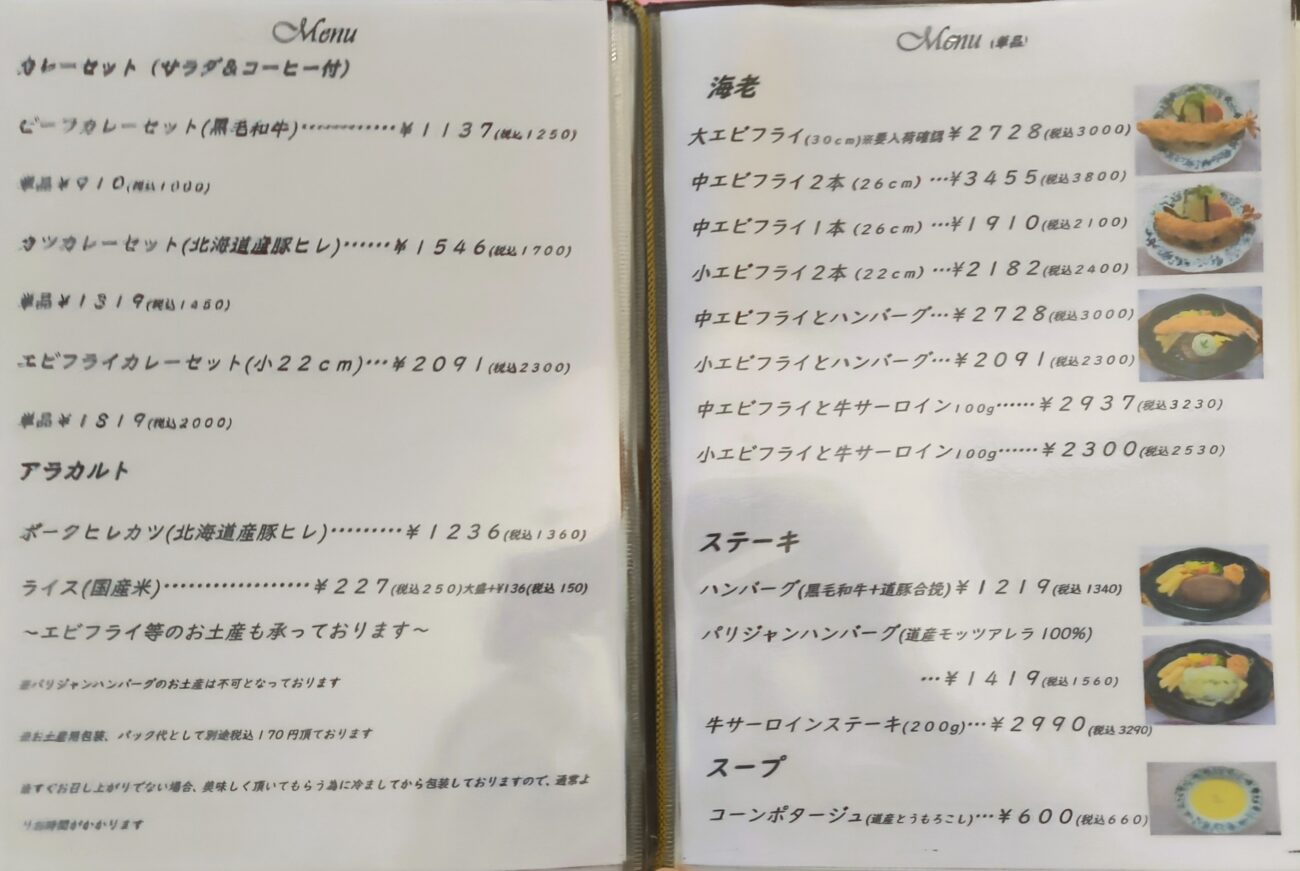 Menu
カレーセット（サラダ&コーヒー付）
ビーフカレーセット(黒毛和牛)…………￥1137(税込1250)
単品￥910(税込1000)
カツカレーセット(北海道産豚ヒレ)……￥1546(税込1700)
単品￥1319(税込1450)
エビフライカレーセット(小22cm)…￥2091(税込2300)
単品￥1819(税込2000)
アラカルト
ポークヒレカツ(北海道産豚ヒレ)………￥1236(税込1360)
ライス(国産米)………………￥227(税込250)大盛+¥136(税込150)
～エビフライ等のお土産も承っております～
※パリジャンハンバーグのお土産は不可となっております
※お土産用包装、パック代として別途税込170円頂ております
※すぐお召し上がりでない場合、美味しく頂いてもらう為に冷ましてから包装しておりますので、通常よ
りお時間がかかります
Menu（単品）
海老
大エビフライ(30cm)※要入荷確認￥2728(税込3000)
中エビフライ2本（26cm）…¥3455(税込3800)
中エビフライ1本（26cm）…¥1910(税込2100)
小エビフライ2本（22cm）…¥2182(税込2400)
中エビフライとハンバーグ…￥2728(税込3000)
小エビフライとハンバーグ…￥2091(税込2300)
中エビフライと牛サーロイン100g……￥2937(税込3230)
小エビフライと牛サーロイン100g……￥2300(税込2530)
ステーキ
ハンバーグ(黒毛和牛+道豚合挽)￥1219(税込1340)
パリジャンハンバーグ(道産モッツアレラ100%)
…￥1419(税込1560)
牛サーロインステーキ(200g)…￥2990(税込3290)
スープ
コーンポタージュ(道産とうもろこし)…￥600(税込660)